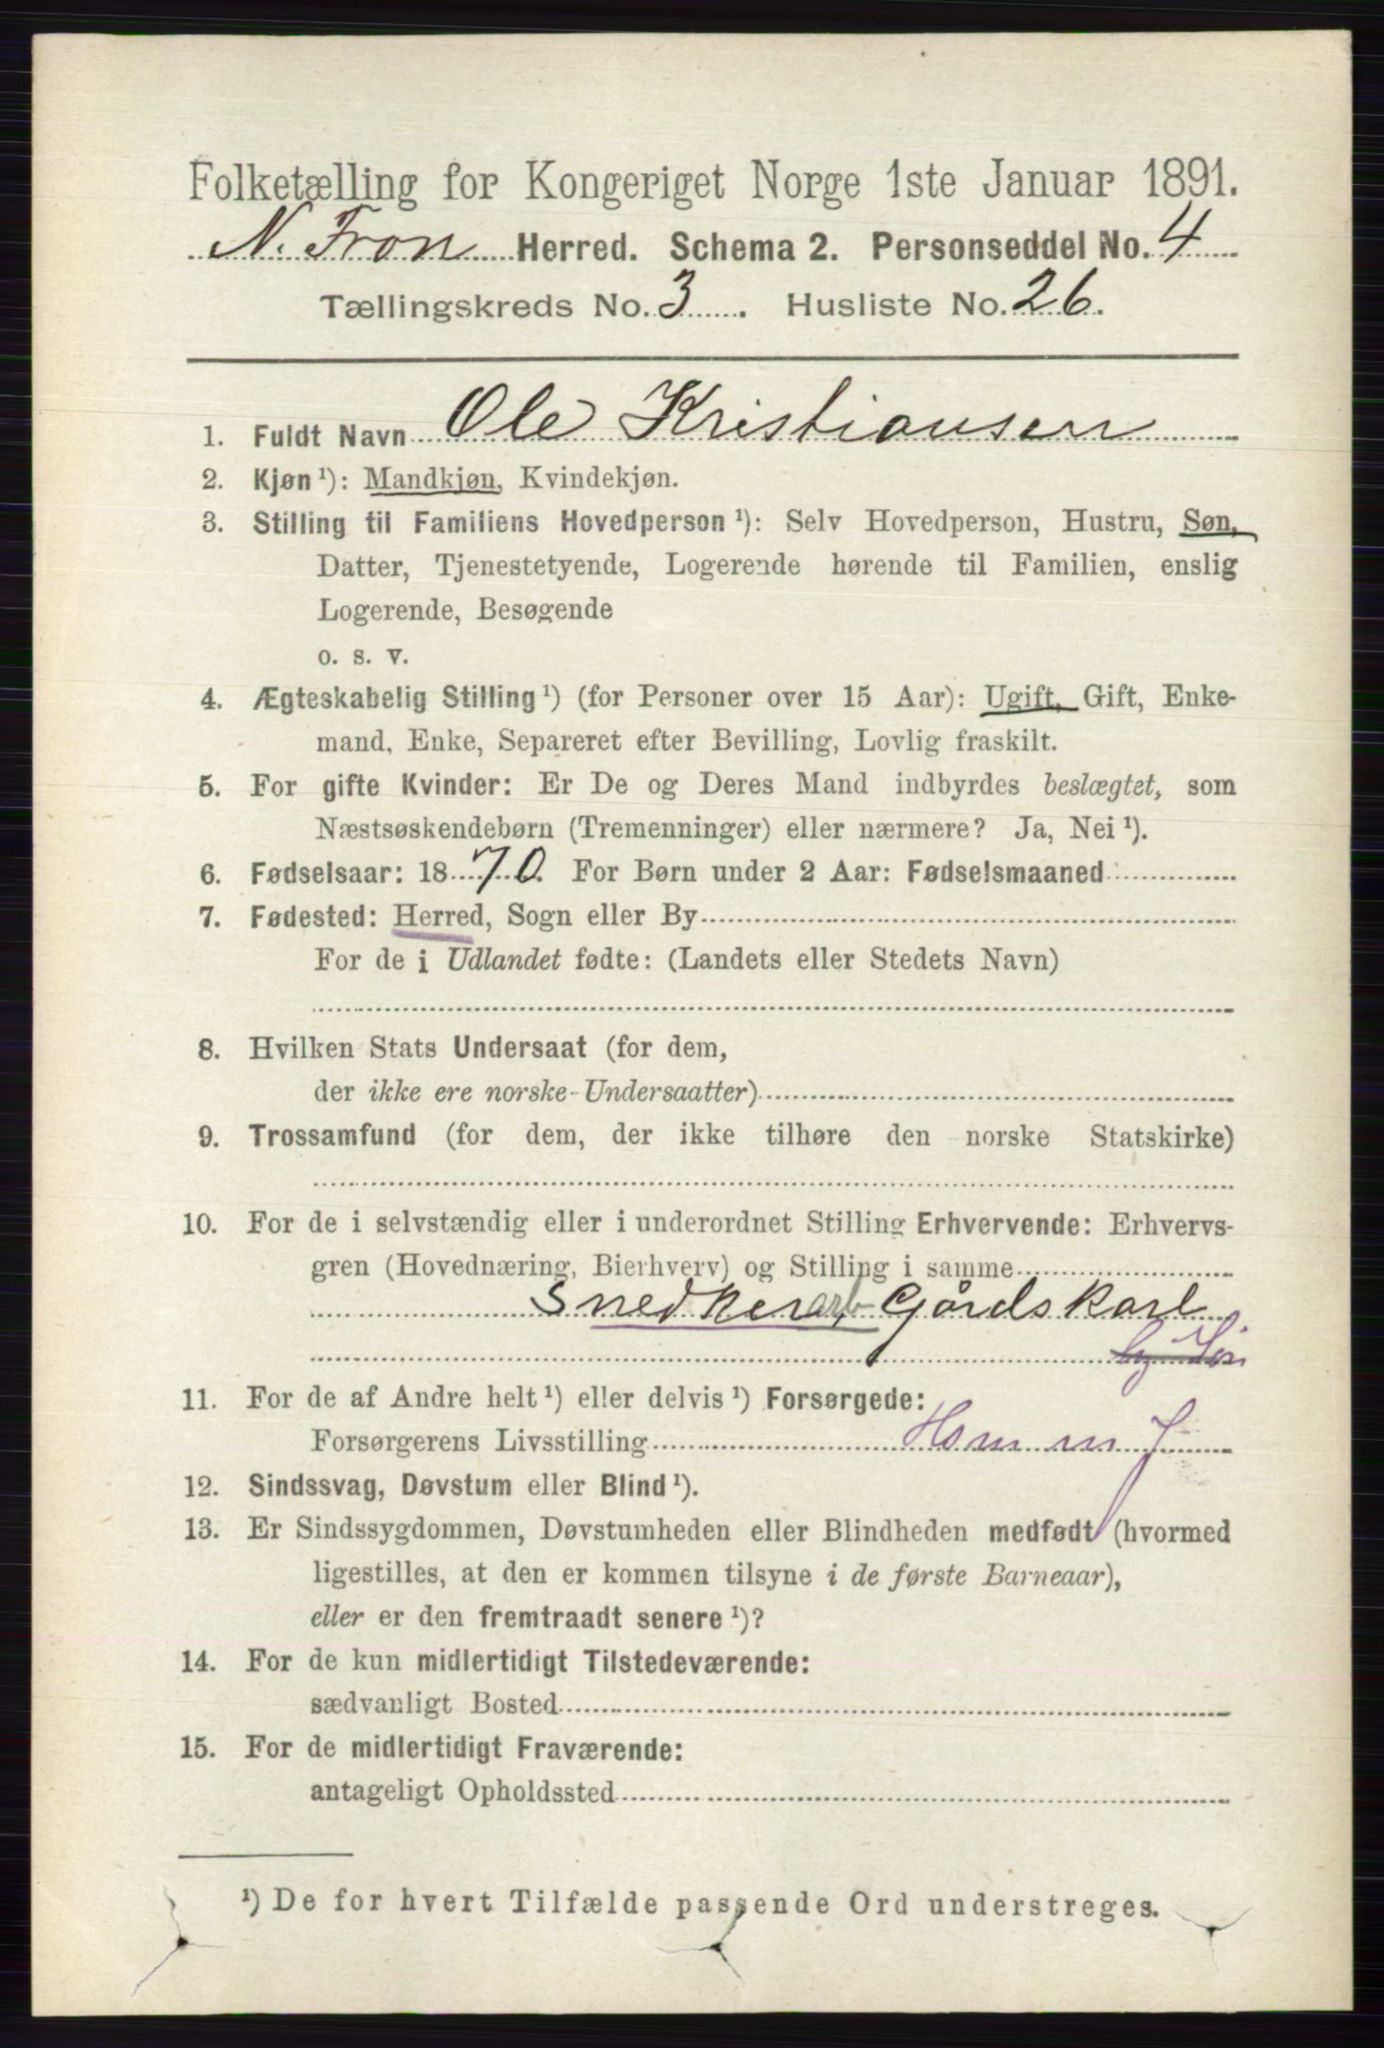 Folketælling for Kongeriget Norge 1ste Januar 1891.
N. Fron Herred. Schema 2. Personseddel No. 4
Tællingskreds No. 3. Husliste No. 26.
1. Fuldt Navn Ole Kristiansen
2. Kjøn ¹): Mandkjøn, Kvindekjøn.
3. Stilling til Familiens Hovedperson ¹): Selv Hovedperson, Hustru, Søn,
Datter, Tjenestetyende, Logerende hørende til Familien, enslig
Logerende, Besøgende
o. s. v.
4. Ægteskabelig Stilling ¹) (for Personer over 15 Aar): Ugift, Gift, Enke-
mand, Enke, Separeret efter Bevilling, Lovlig fraskilt.
5. For gifte Kvinder: Er De og Deres Mand indbyrdes beslægtet, som
Næstsøskendebørn (Tremenninger) eller nærmere? Ja, Nei ¹).
6. Fødselsaar: 1870. For Børn under 2 Aar: Fødselsmaaned
7. Fødested: Herred, Sogn eller By
For de i Udlandet fødte: (Landets eller Stedets Navn)
8. Hvilken Stats Undersaat (for dem,
der ikke ere norske Undersaatter)
9. Trossamfund (for dem, der ikke tilhøre den norske Statskirke)
10. For de i selvstændig eller i underordnet Stilling Erhvervende: Erhvervs-
gren (Hovednæring, Bierhverv) og Stilling i samme
Snedkerarb Gårdskarl
11. For de af Andre helt ¹) eller delvis ¹) Forsørgede:
Forsørgerens Livsstilling
12. Sindssvag, Døvstum eller Blind ¹).
13. Er Sindssygdommen, Døvstumheden eller Blindheden medfødt (hvormed
ligestilles, at den er kommen tilsyne i de første Barneaar),
eller er den fremtraadt senere ¹)?
14. For de kun midlertidigt Tilstedeværende:
sædvanligt Bosted
15. For de midlertidigt Fraværende:
antageligt Opholdssted
¹) De for hvert Tilfælde passende Ord understreges.